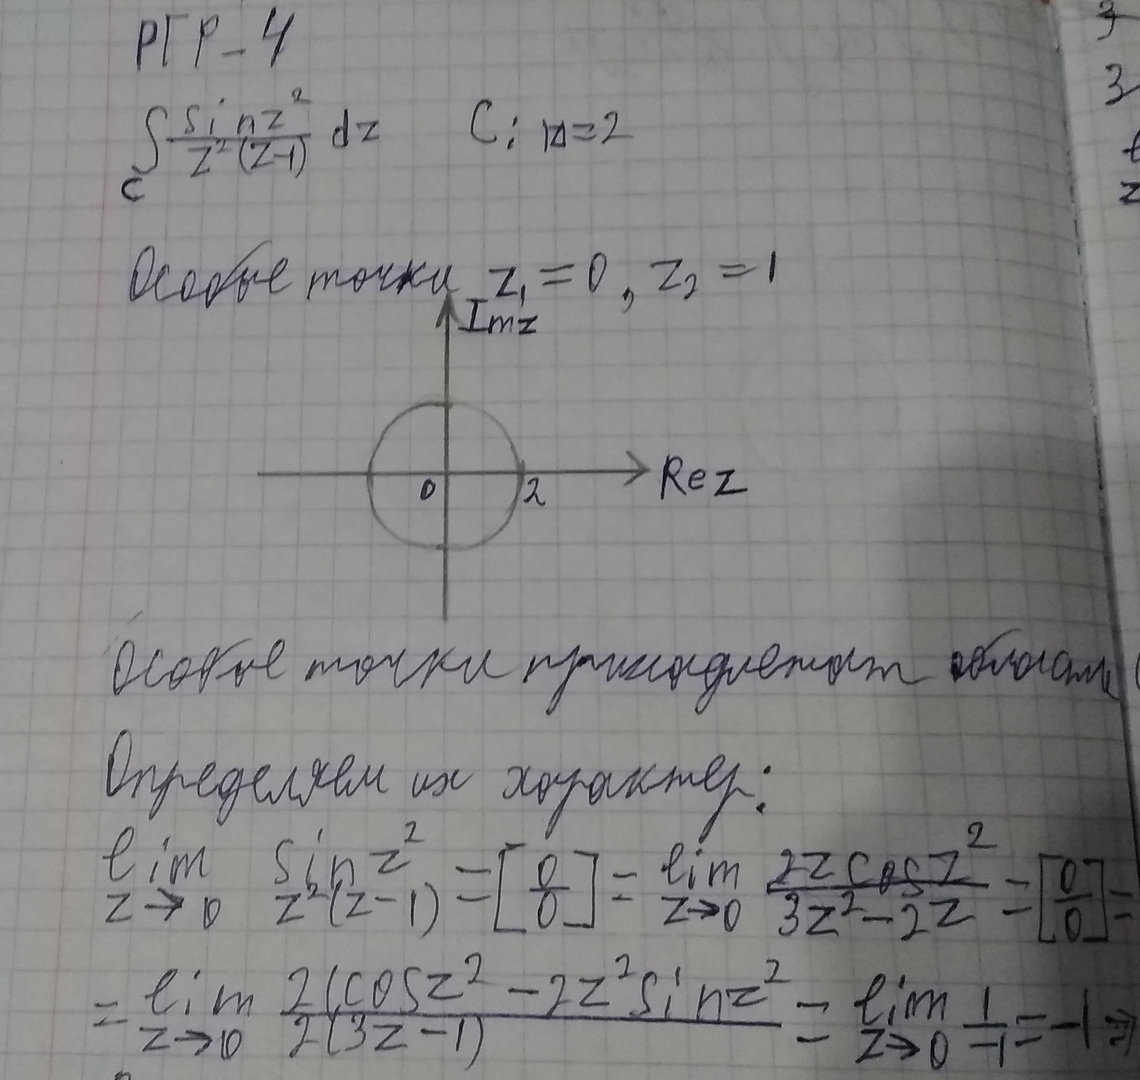 РГР-4
∫_C sin z² / z²(z-1) dz C: |z|=2
Особые точки z₁ = 0, z₂ = 1
Im z
0 2 Re z
Особые точки принадлежат области
Определяем их характер:
lim_{z→0} sin z² / z²(z-1) = [0/0] = lim_{z→0} 2z cos z² / 3z² - 2z = [0/0] =
= lim_{z→0} 2(cos z² - 2z² sin z² / 2(3z-1) = lim_{z→0} 1/-1 = -1 ⇒